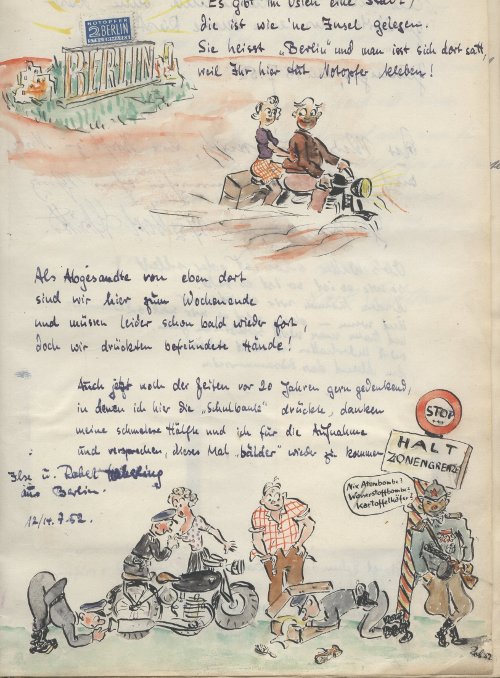 Es gibt im Osten eine Stadt,
die ist wie 'ne Insel gelegen.
Sie heisst „Berlin" und man isst sich dort satt,
weil Ihr hier tut Notopfer kleben!
NOTOPFER
2 BERLIN
STEUERMARKE
BERLIN
Als Abgesandte von eben dort
sind wir hier zum Wochenende
und müssen leider schon bald wieder fort,
doch wir drückten befreundete Hände!
Auch jetzt noch der Zeiten vor 20 Jahren gern gedenkend,
in denen ich hier die „Schulbank" drückte, danken
meine schwarze Hälfte und ich für die Aufnahme
und versprechen, dieses Mal „bälder" wieder zu kommen.
Ilse u.
aus Berlin.
12/14.7.52.
STOP
HALT
ZONENGRENZE
Nix Atombombe!
Wasserstoffbombe!
Kartoffelkäfer!